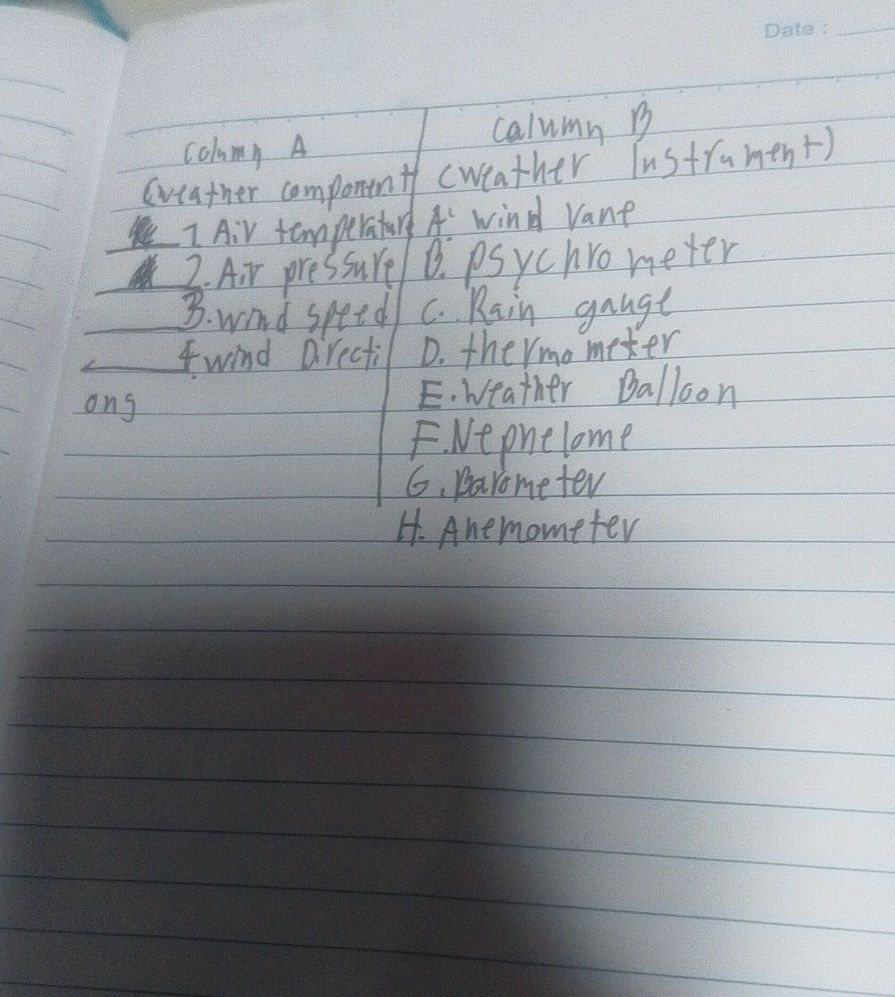 Date :
Column A
Calumn B
(weather component
(Weather Instrument)
1 Air temperature
A. wind vane
2. Air pressure
B. psychrometer
3. wind speed
C. Rain gauge
4. wind Directi
D. thermometer
ons
E. Weather Balloon
F. Nephelome
G. Barometer
H. Anemometer